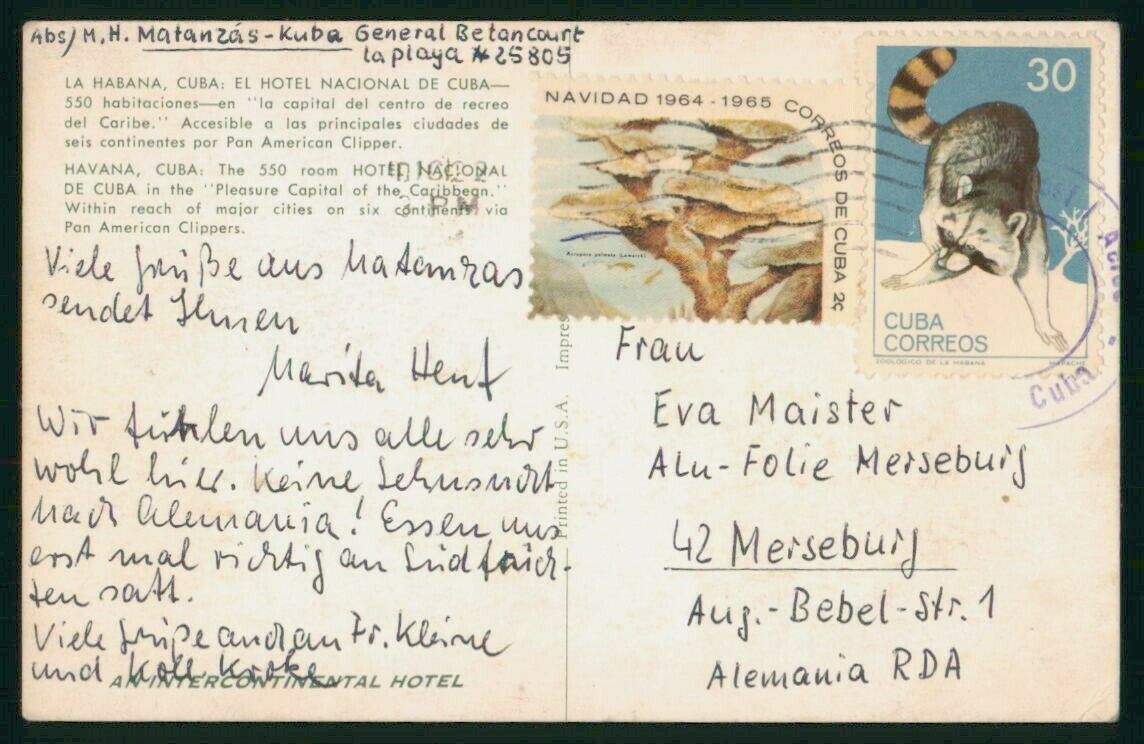 Abs/ M.H. Matanzás-Kuba General Betancourt
la playa # 25805
LA HABANA, CUBA: EL HOTEL NACIONAL DE CUBA—
550 habitaciones—en "la capital del centro de recreo
del Caribe." Accesible a las principales ciudades de
seis continentes por Pan American Clipper.
HAVANA, CUBA: The 550 room HOTEL NACIONAL
DE CUBA in the "Pleasure Capital of the Caribbean."
Within reach of major cities on six continents via
Pan American Clippers.
Viele Grüße aus Matanzas
sendet Ihnen
Marita
Wir fühlen uns alle sehr
wohl hier. Keine Sehnsucht
nach Alemania! Essen uns
erst mal richtig an Südfrüch-
ten satt.
Viele Grüße auch an Fr. Kleine
und Koll.
AN INTERCONTINENTAL HOTEL
Printed in U.S.A. Impres
NAVIDAD 1964-1965 CORREOS DE CUBA 2¢
Acropora palmata (Lamarck)
30
CUBA
CORREOS
ZOOLOGICO DE LA HABANA MAPACHE
PM
Cuba
Frau
Eva Maister
Alu-Folie Merseburg
42 Merseburg
Aug.-Bebel-Str. 1
Alemania RDA